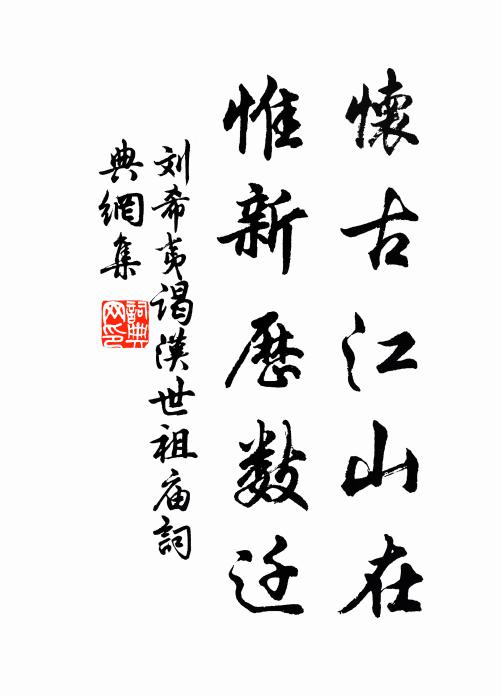 懷古江山在
惟新歷數迁
刘希夷谒漢世祖庙詞
典網集
詞典網印